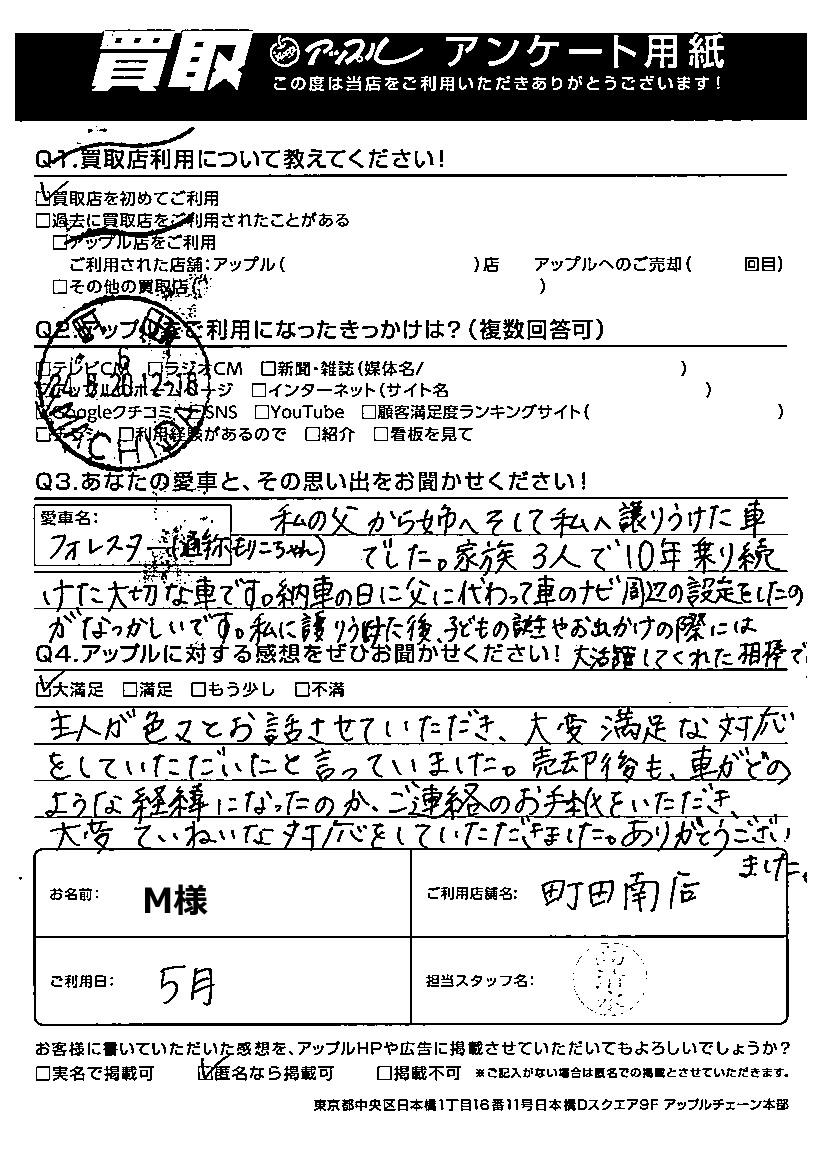 買取 アップル アンケート用紙
この度は当店をご利用いただきありがとうございます!
Q1.買取店利用について教えてください!
☑買取店を初めてご利用
□過去に買取店をご利用されたことがある
□アップル店をご利用
ご利用された店舗:アップル( )店 アップルへのご売却( 回目)
□その他の買取店( )
Q2.アップルをご利用になったきっかけは?(複数回答可)
□テレビCM □ラジオCM □新聞・雑誌(媒体名/ )
ホームページ □インターネット(サイト名 )
Googleクチコミ □SNS □YouTube □顧客満足度ランキングサイト( )
□チラシ □利用経験があるので □紹介 □看板を見て
町田
24.6.20 12-18
MACHIDA
Q3.あなたの愛車と、その思い出をお聞かせください!
愛車名:
フォレスター(通称もりこちゃん)
私の父から姉へそして私へ譲りうけた車
でした。家族3人で10年乗り続
けた大切な車です。納車の日に父に代わって車のナビ周辺の設定をしたの
がなつかしいです。私に譲りうけた後、子どもの誕生やお出かけの際には
大活躍してくれた相棒で
Q4.アップルに対する感想をぜひお聞かせください!
☑大満足 □満足 □もう少し □不満
主人が色々とお話させていただき、大変満足な対応
をしていただいたと言っていました。売却後も、車がどの
ような経緯になったのか、ご連絡のお手紙をいただき、
大変ていねいな対応をしていただきました。ありがとうござい
ました。
お名前: M様
ご利用店舗名: 町田南店
ご利用日: 5月
担当スタッフ名:
お客様に書いていただいた感想を、アップルHPや広告に掲載させていただいてもよろしいでしょうか?
□実名で掲載可 ☑匿名なら掲載可 □掲載不可 ※ご記入がない場合は匿名での掲載とさせていただきます。
東京都中央区日本橋1丁目16番11号日本橋Dスクエア9F アップルチェーン本部